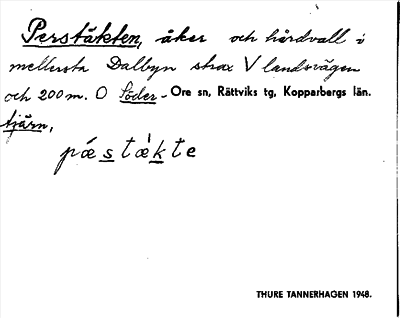 Perstäkten, åker och hårdvall i
mellersta Dalbyn strax V landsvägen
och 200 m. O Söder- Ore sn, Rättviks tg, Kopparbergs län.
tjärn,
pǽstæ̀kte
THURE TANNERHAGEN 1948.